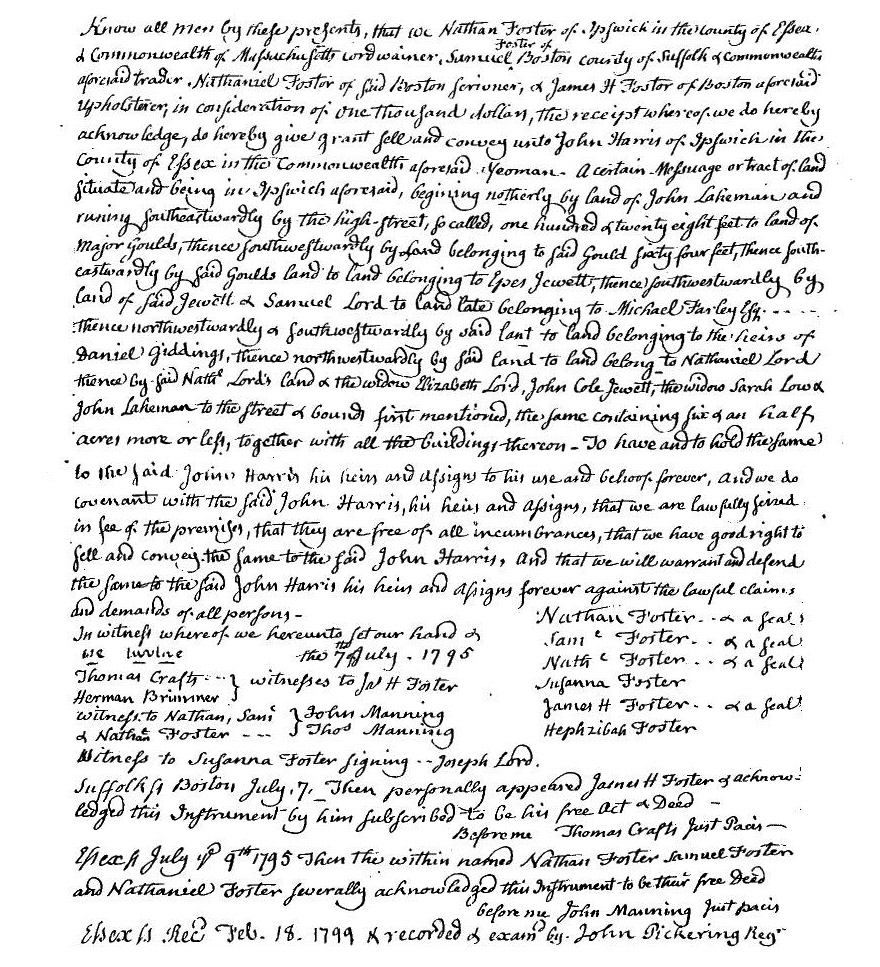 Know all men by these presents, that we Nathan Foster of Ipswich in the County of Essex,
& Commonwealth of Massachusetts cordwainer, Samuel Foster of Boston county of Suffolk & commonwealth
aforesaid trader, Nathaniel Foster of said Boston scrivner, & James H Foster of Boston aforesaid
Upholsterer, in consideration of one thousand dollars, the receipt whereof we do hereby
acknowledge, do hereby give grant sell and convey unto John Harris of Ipswich in the
County of Essex in the Commonwealth aforesaid Yeoman - A certain Messuage or tract of land
situate and being in Ipswich aforesaid, begining notherly by land of John Lakeman and
runing Southeastwardly by the high street, so called, one hundred & twenty eight feet to land of
Major Goulds, thence southwestwardly by land belonging to said Gould sixty four feet, thence south-
eastwardly by said Goulds land to land belonging to Epes Jewett, thence southwestwardly by
land of said Jewett & Samuel Lord to land late belonging to Michael Farley Esq. - - - -
thence northwestwardly & southwestwardly by said lant to land belonging to the heirs of
Daniel Giddings, thence northwestwardly by said land to land belong to Nathaniel Lord
thence by said Nathl Lord's land & the widow Elizabeth Lord, John Cole Jewett, the widow Sarah Low &
John Lakeman to the street & bounds first mentioned, the same containing six & an half
acres more or less, together with all the buildings thereon - To have and to hold the same
to the said John Harris his heirs and assigns to his use and behoof forever, And we do
covenant with the said John Harris, his heirs and assigns, that we are lawfully seized
in fee of the premises, that they are free of all incumbrances, that we have good right to
sell and convey the same to the said John Harris, And that we will warrant and defend
the same to the said John Harris his heirs and assigns forever against the lawful claims
and demands of all persons -
In witness whereof we hereunto set our hand &
the 7th July - 1795
Nathan Foster - - & a seal
Saml Foster - - & a seal
Nathl Foster - - & a seal
Susanna Foster
James H Foster - - & a seal
Hephzibah Foster
Thomas Crafts - - } witnesses to Jas H Foster
Herman Brimmer
witness to Nathan, Saml } John Manning
& Nathl Foster - - - } Thos Manning
Witness to Susanna Foster signing - - Joseph Lord.
Suffolk ss Boston July. 7. Then personally appeared James H Foster & acknow-
ledged this Instrument by him subscribed to be his free Act & Deed -
Before me Thomas Crafts Just Pacis -
Essex ss July 9th 1795 Then the within named Nathan Foster Samuel Foster
and Nathaniel Foster severally acknowledged this Instrument to be their free Deed
before me John Manning Just pacis
Essex ss Recd Feb. 18. 1799 & recorded & examd by - John Pickering Regr